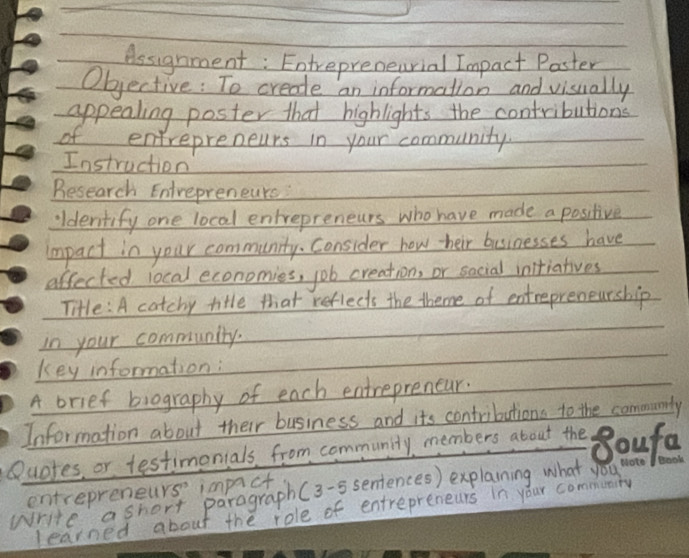 Assignment : Entrepreneurial Impact Poster
Objective : To create an information and visually
appealing poster that highlights the contributions
of entrepreneurs in your community.
Instruction
Research Entrepreneurs :
Identify one local entrepreneurs who have made a positive
impact in your community. Consider how their businesses have
affected local economies, job creation, or social initiatives
Title : A catchy title that reflects the theme of entrepreneurship
in your community.
Key information :
A brief biography of each entrepreneur.
Information about their business and its contributions to the community
Quotes, or testimonials from community members about the
entrepreneurs' impact.
Write a short paragraph (3-5 sentences) explaining what you
learned about the role of entrepreneurs in your community
Soufa
Note Book